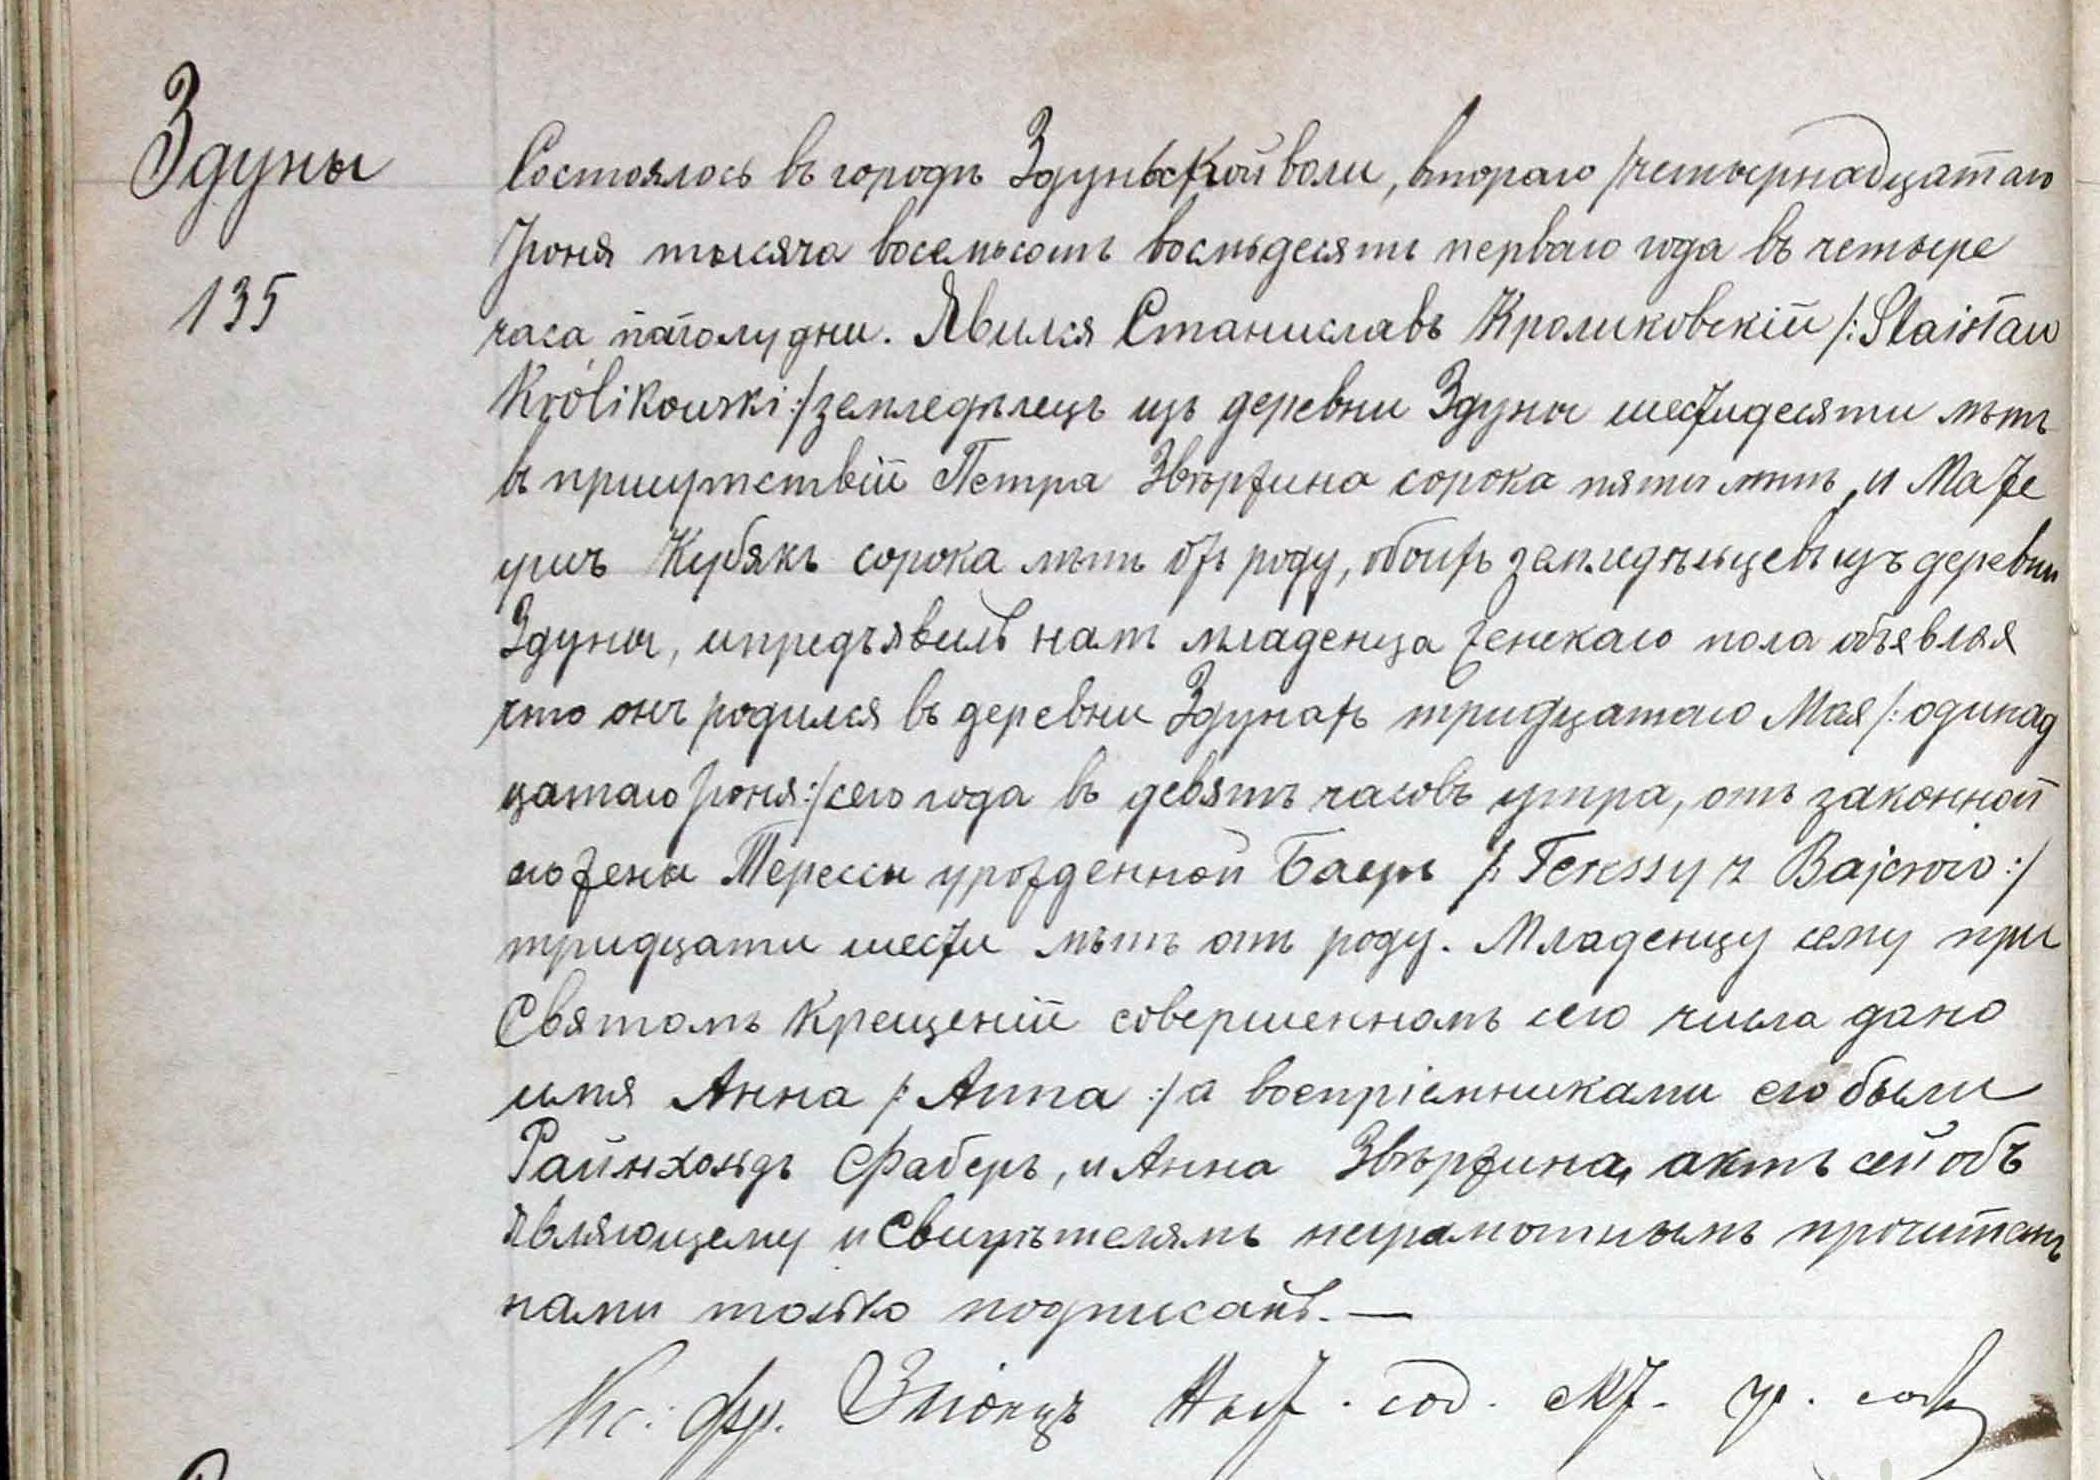 Здуны
135
Состоялось въ городѣ Здуньской воли, втораго /четырнадцатаго
Іюня тысяча восемьсотъ восмьдесятъ перваго года въ четыре
часа пополудни. Явился Станиславъ Кроликовскій /: Staisław
Królikowski :/ земледѣлецъ изъ деревни Здуны шестидесяти лѣтъ
в присутствіи Петра Звѣржина сорока пяти лѣтъ, и Мате
ушъ Кубякъ сорока лѣтъ отъ роду, обоихъ земледѣльцевъ изъ деревни
Здуны, и предъявилъ намъ младенца женскаго пола объявляя
что онъ родился въ деревни Здунахъ тридцатаго Мая /: одинад
цатаго Іюня :/ сего года въ девять часовъ утра, отъ законной
его жены Терессы урожденной Баеръ /: Teressy z Bajerów :/
тридцати шести лѣтъ отъ роду. Младенцу сему при
Святомъ Крещеніи совершенномъ сего числа дано
имя Анна /: Anna :/ а воспріемниками его были
Райнхольдъ Фаберъ, и Анна Звѣржина, актъ сей объ
являющему и Свидѣтелямъ неграмотнымъ прочитанъ
нами только подписанъ. —
Кс: Фр.